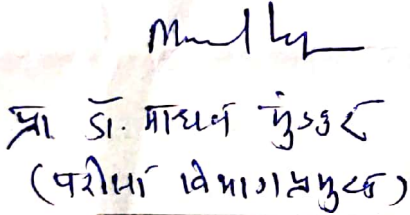 प्रा. डॉ. माधव मुंडकर
(परीक्षा विभागप्रमुख)